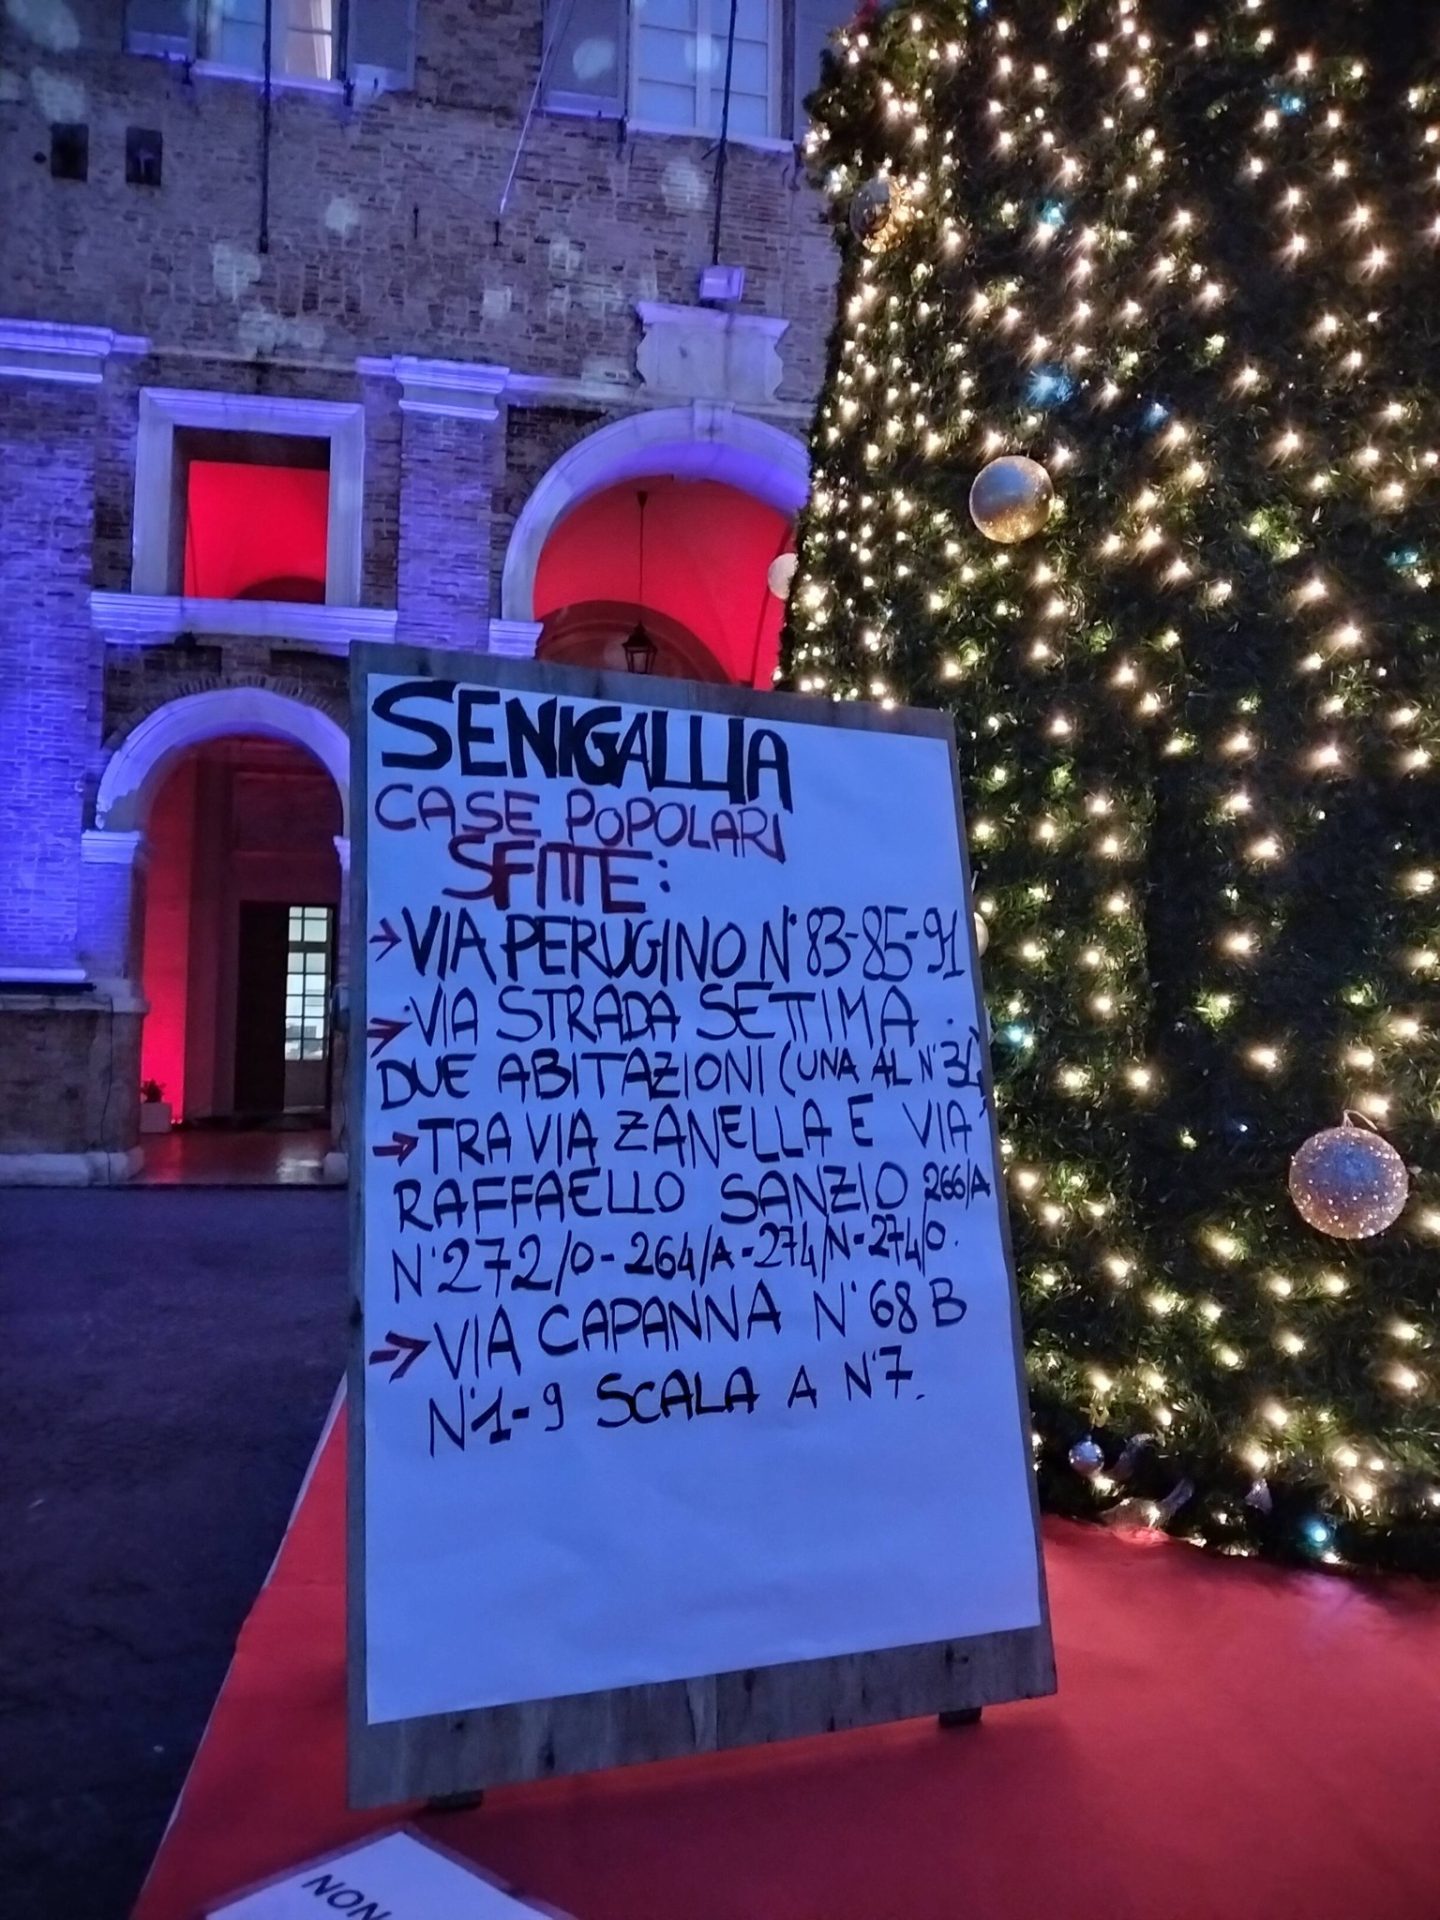 SENIGALLIA
CASE POPOLARI
SFITTE:
→ VIA PERUGINO N° 83-85-91
→ VIA STRADA SETTIMA
DUE ABITAZIONI (UNA AL N°
→ TRA VIA ZANELLA E VIA
RAFFAELLO SANZIO 266/A
N° 272/O - 264/A - 274/N - 274/O.
→ VIA CAPANNA N° 68 B
N° 1-9 SCALA A N° 7.
NON